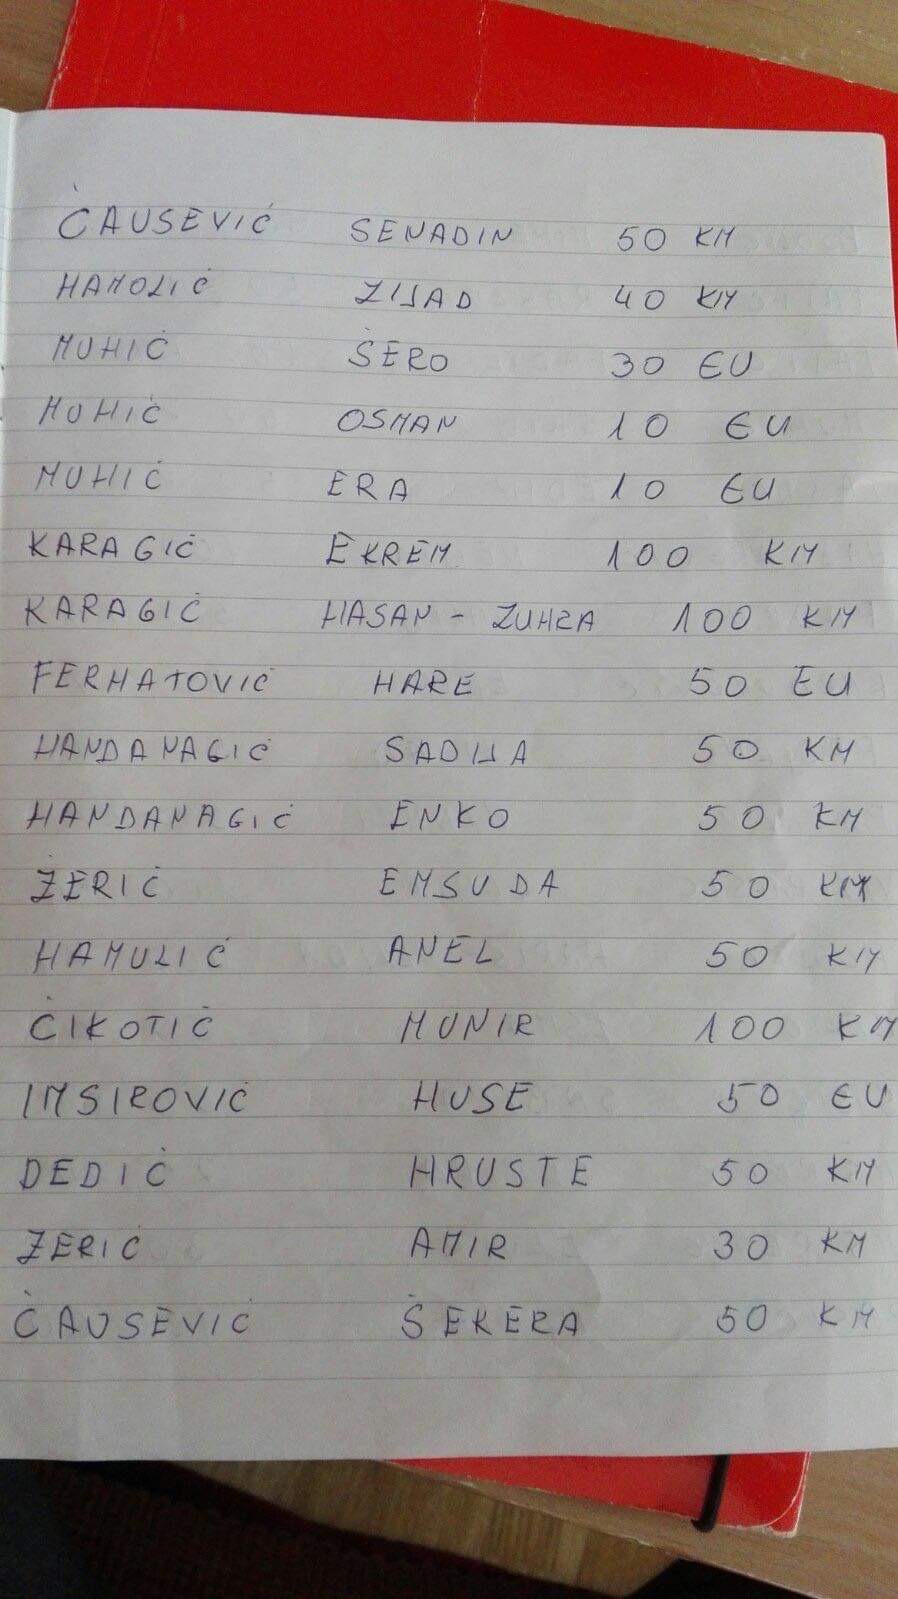 ĆAUSEVIĆ SENADIN 50 KM
HAMOLIĆ ZIJAD 40 KM
MUHIĆ ŠERO 30 EU
MUHIĆ OSMAN 10 EU
MUHIĆ ERA 10 EU
KARAGIĆ EKREM 100 KM
KARAGIĆ HASAN - ZUHRA 100 KM
FERHATOVIĆ HARE 50 EU
HANDANAGIĆ SADIJA 50 KM
HANDANAGIĆ ENKO 50 KM
ŻERIĆ EMSUDA 50 KM
HAMULIĆ ANEL 50 KM
ĆIKOTIĆ MUNIR 100 KM
IMSIROVIĆ HUSE 50 EU
DEDIĆ HRUSTE 50 KM
ZERIĆ AMIR 30 KM
ĆAUSEVIĆ ŠEKERA 50 KM